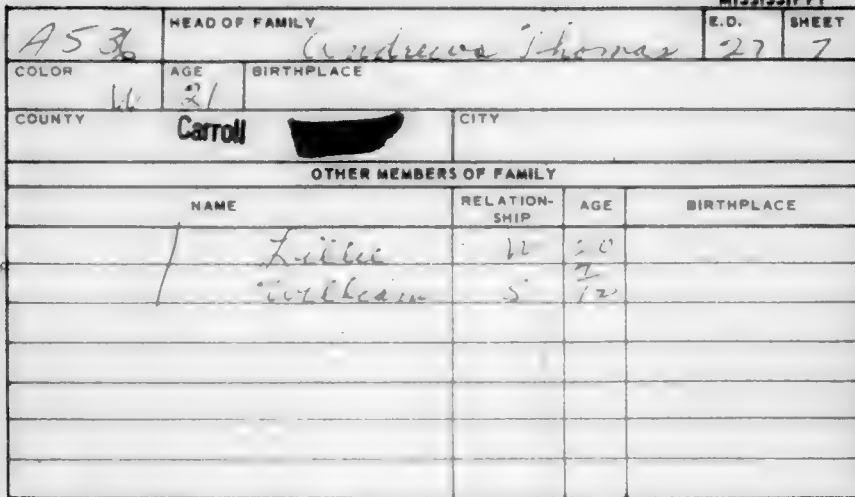 MISSISSIPPI
A536 HEAD OF FAMILY Andrews Thomas E.D. 27 SHEET 7
COLOR W AGE 21 BIRTHPLACE
COUNTY Carroll CITY
OTHER MEMBERS OF FAMILY
NAME RELATION-SHIP AGE BIRTHPLACE
Lillie W 20
William S 7/12